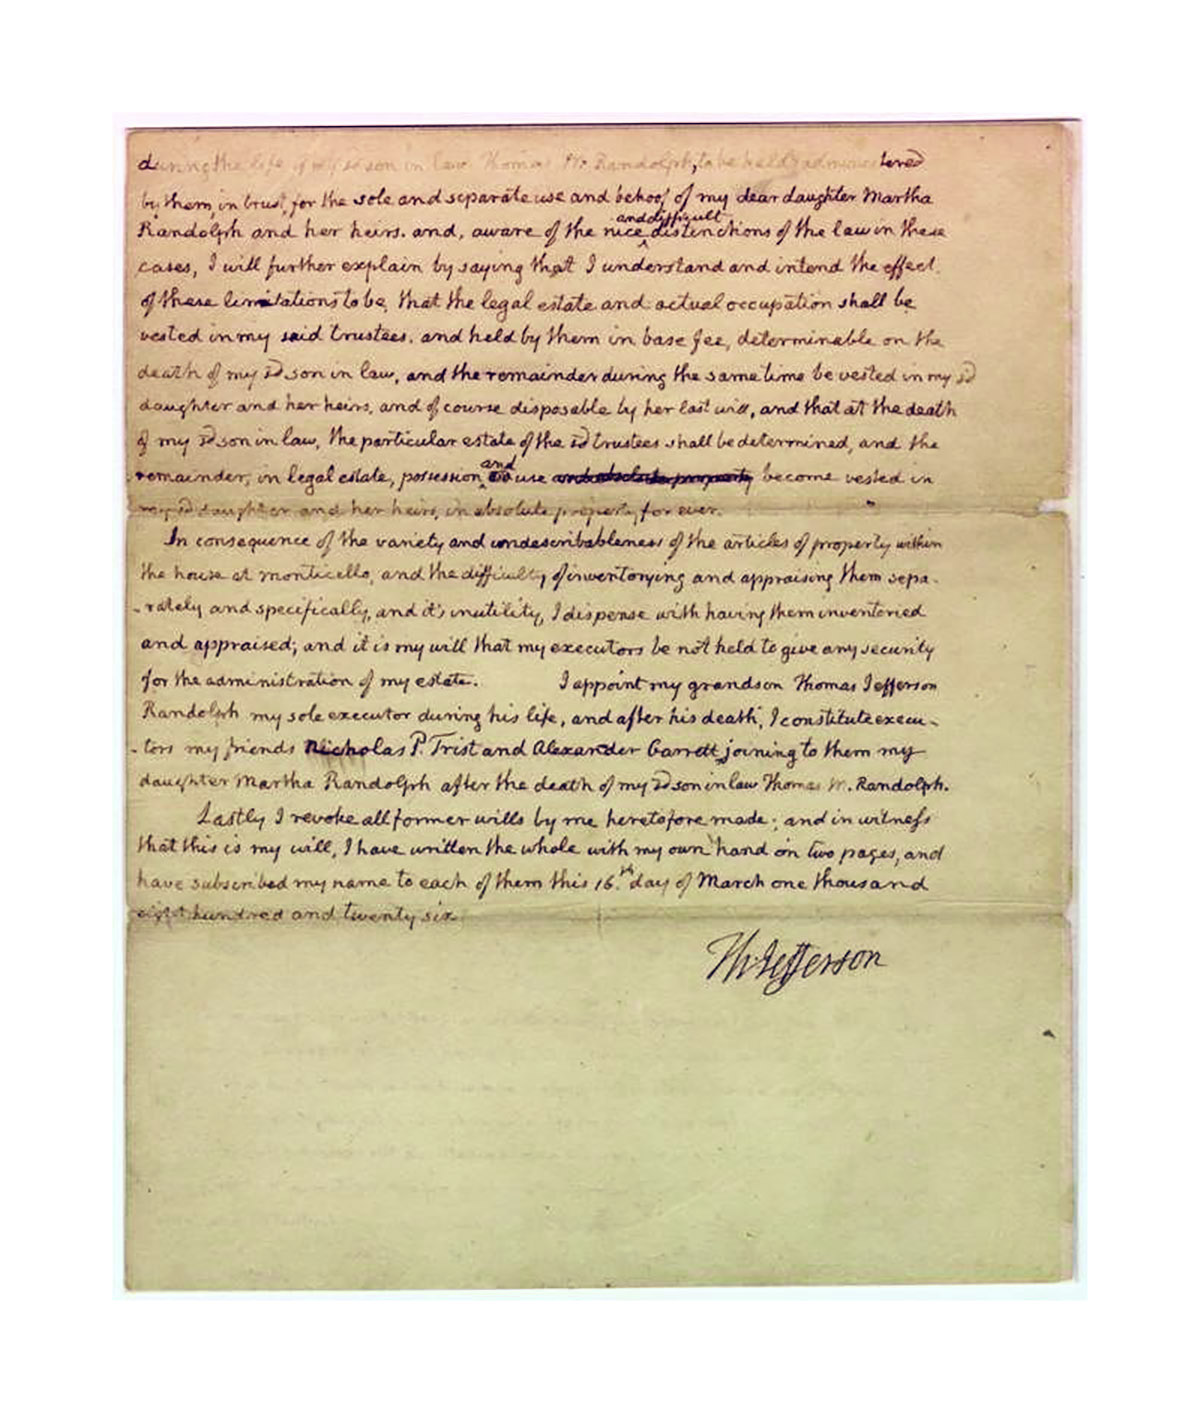 during the life of my sd son in law Thomas M. Randolph, to be held & administered
by them, in trust, for the sole and separate use and behoof of my dear daughter Martha
Randolph and her heirs. and, aware of the nice and difficult distinctions of the law in these
cases, I will further explain by saying that I understand and intend the effect
of these limitations to be, that the legal estate and actual occupation shall be
vested in my said trustees, and held by them in base fee, determinable on the
death of my sd son in law, and the remainder during the same time be vested in my sd
daughter and her heirs, and of course disposable by her last will, and that at the death
of my sd son in law, the particular estate of the sd trustees shall be determined, and the
remainder, in legal estate, possession and use become vested in
my sd daughter and her heirs, in absolute property for ever.
In consequence of the variety and undescribableness of the articles of property within
the house at monticello, and the difficulty of inventorying and appraising them sepa-
-rately and specifically, and it's inutility, I dispense with having them inventoried
and appraised; and it is my will that my executors be not held to give any security
for the administration of my estate. I appoint my grandson Thomas Jefferson
Randolph my sole executor during his life, and after his death, I constitute execu-
-tors my friends Nicholas P. Trist and Alexander Garrett, joining to them my
daughter Martha Randolph after the death of my sd son in law Thomas M. Randolph.
Lastly I revoke all former wills by me heretofore made; and in witness
that this is my will, I have written the whole with my own hand on two pages, and
have subscribed my name to each of them this 16th day of March one thousand
eight hundred and twenty six.
Th: Jefferson